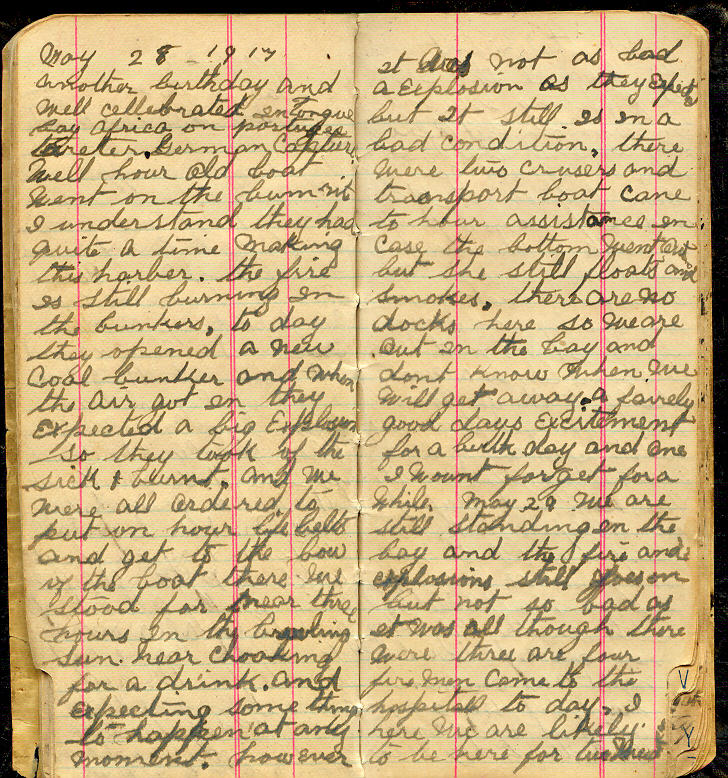 May 28 1917
another birthday and
well cellebrated in tongue
bay africa on portugee
German Capture
well hour old boat
went on the bum nit
I understand they had
quite a time making
this harber. the fire
is still burning in
the bunkers, to day
they opened a new
coal bunker and when
the air got in they
Expected a big Explosion
so they took of the
sick & burnt. and we
were all ordered to
put on hour life belts
and get to the bow
of the boat there we
stood for near three
hours in the
sun. near choaking
for a drink. and
expecting some thing
to happen at any
moment. however
it was not as bad
a Explosion as they Expect
but it still is in a
bad condition, there
were two crusers and
transport boat cane
to hour assistance in
case the bottom went out
but she still floats and
smokes, there are no
docks here so we are
out in the bay and
dont know when we
will get away. a fairely
good days excitement
for a birth day and one
I wount forget for a
while. May 29 we are
still standing in the
bay and the fire and
explosions still goes on
but not so bad as
it was all though there
were three are four
fire men come to the
hospital to day, I
here we are likely
to be here for two